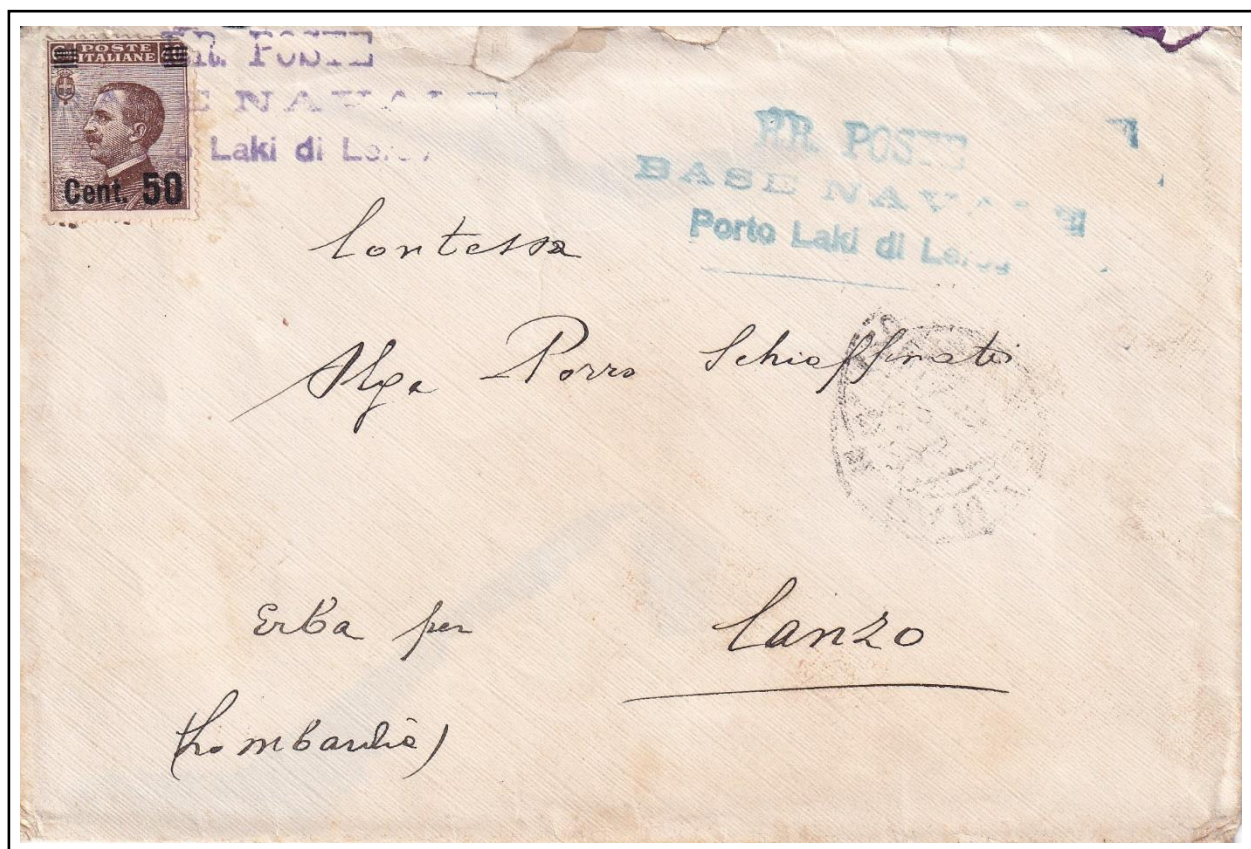 POSTE
ITALIANE
Cent. 50
RR. POSTE
NAVALE
Laki di Leros
RR. POSTE
BASE NAVALE
Porto Laki di Leros
Contessa
Olga Porro Schiaffinati
Erba per Canzo
(Lombardia)